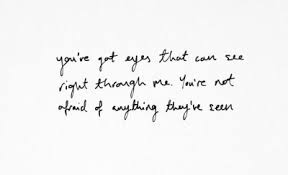 you've got eyes that can see
right through me. You're not
afraid of anything they've seen